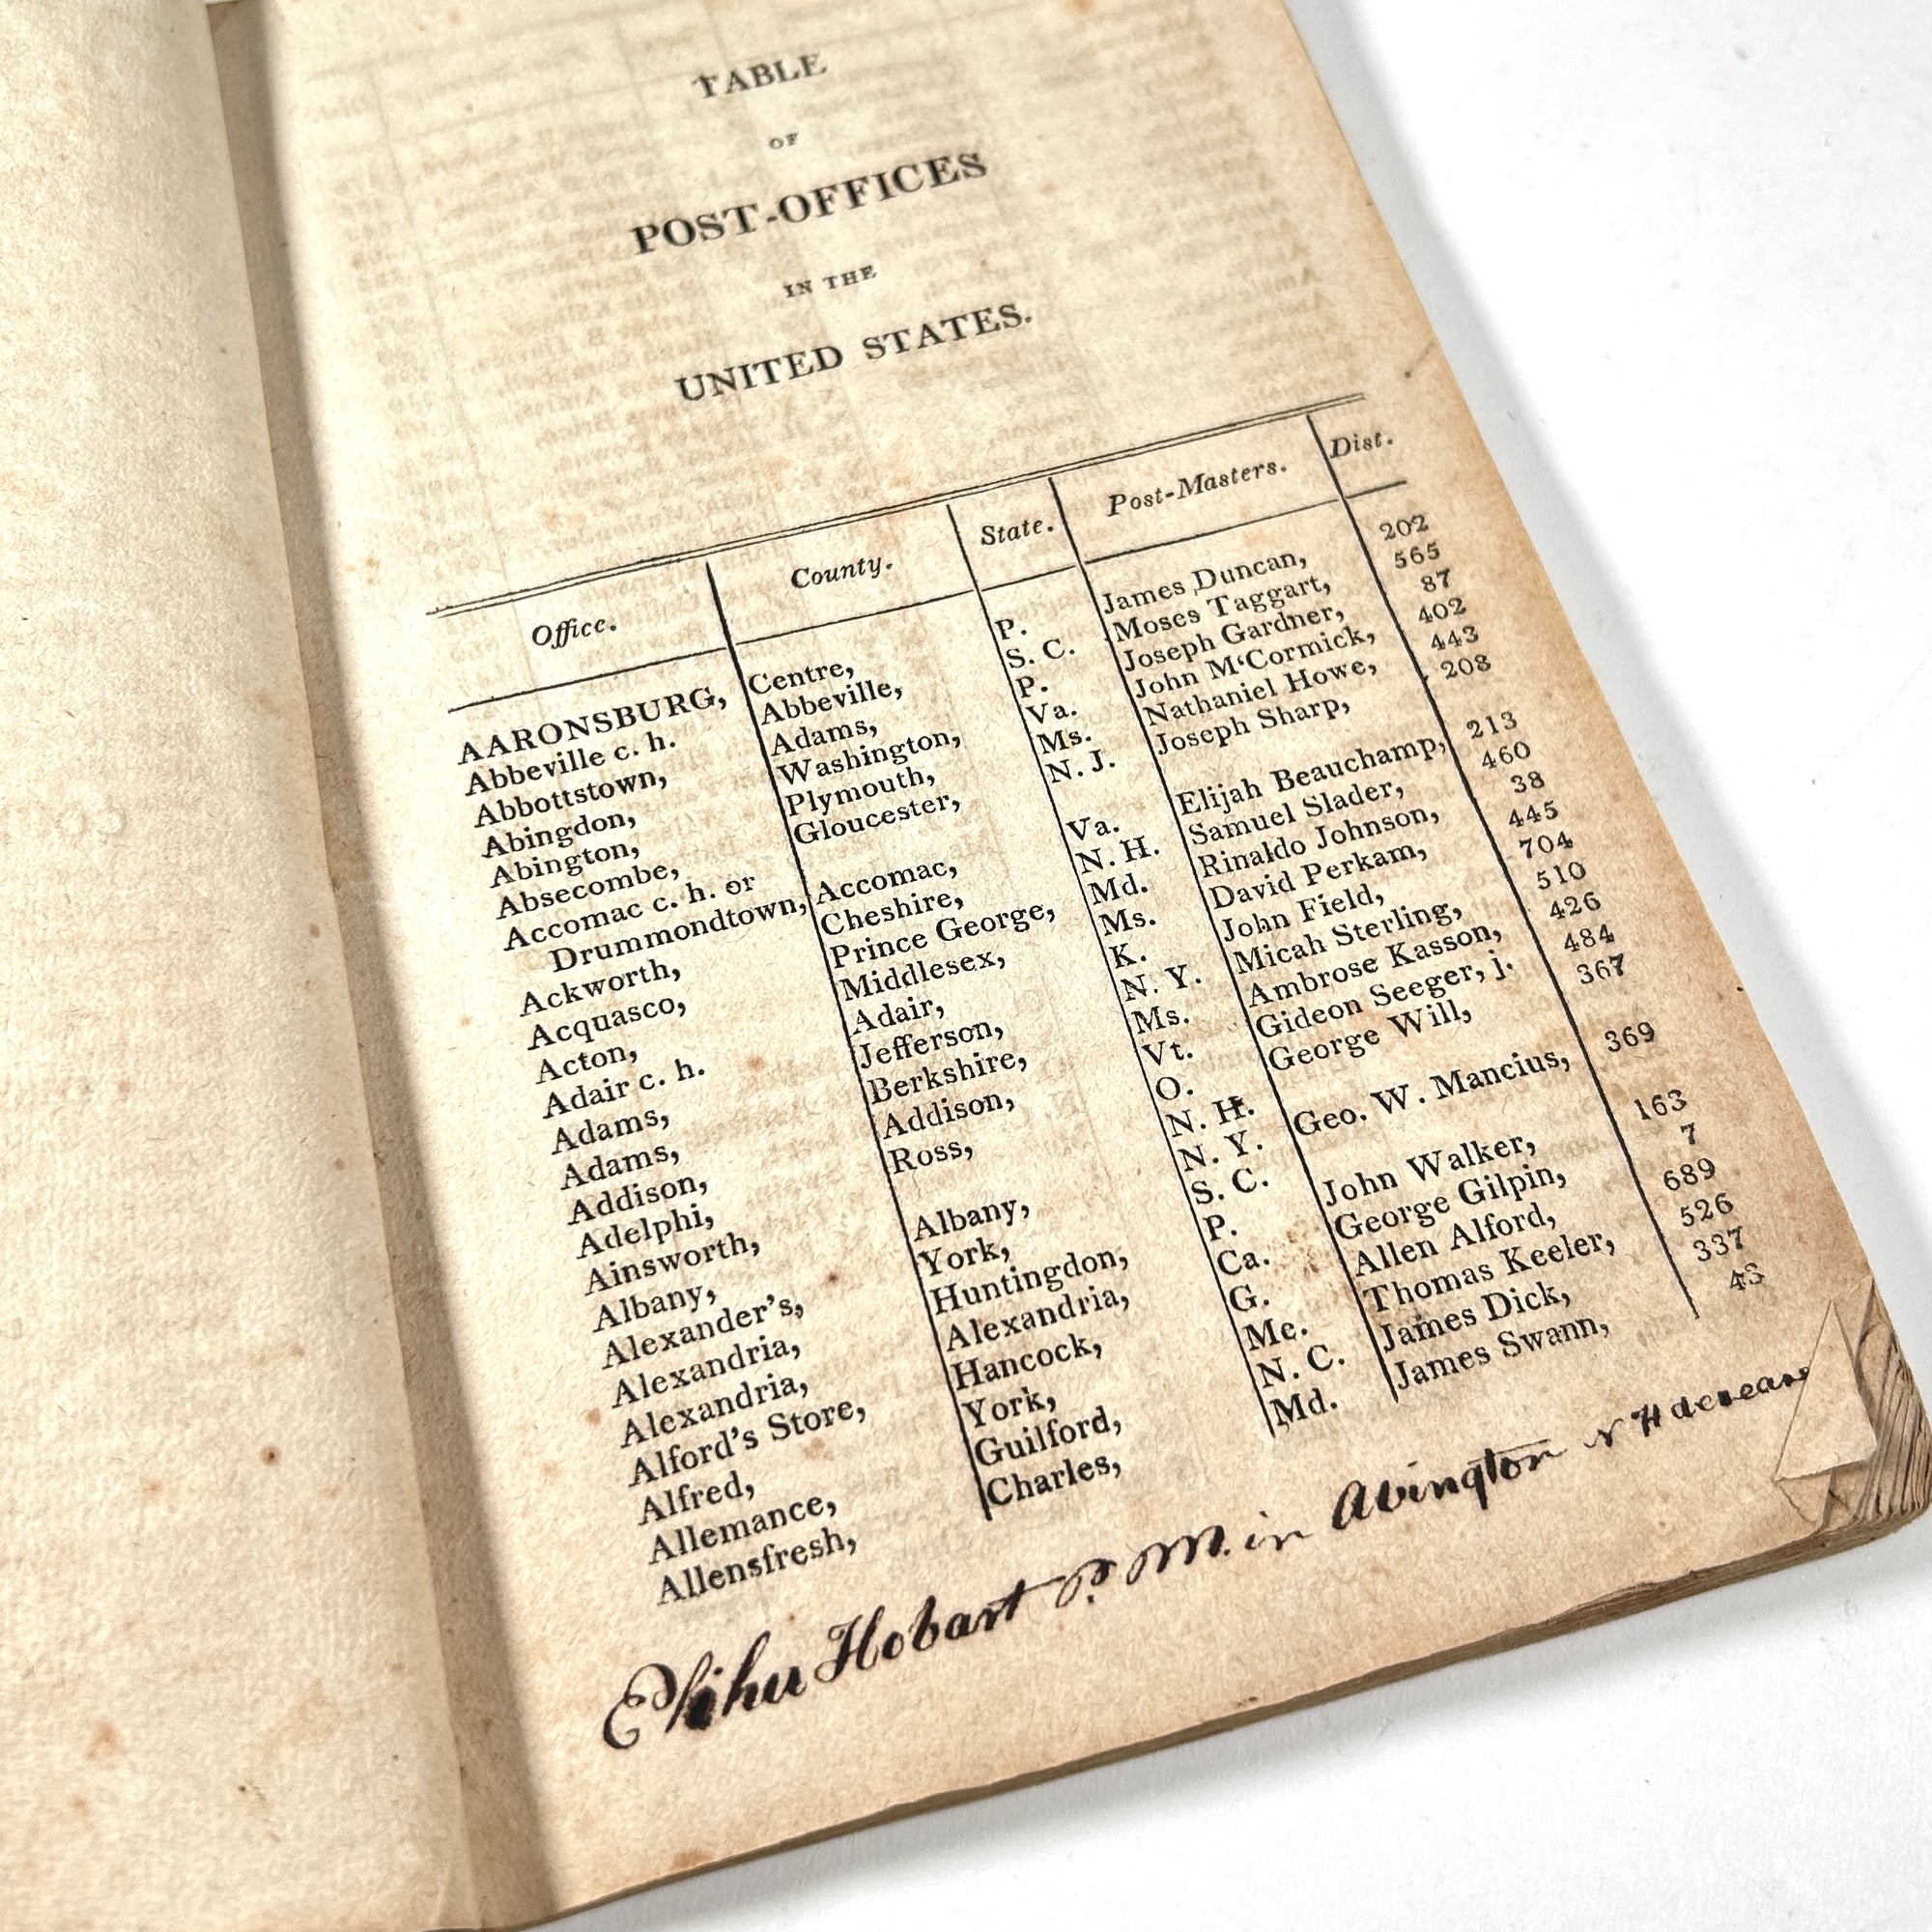 TABLE
OF
POST-OFFICES
IN THE
UNITED STATES.
Office. County. State. Post-Masters. Dist.
AARONSBURG, Centre, P. James Duncan, 202
Abbeville c. h. Abbeville, S. C. Moses Taggart, 565
Abbottstown, Adams, P. Joseph Gardner, 87
Abingdon, Washington, Va. John M‘Cormick, 402
Abington, Plymouth, Ms. Nathaniel Howe, 443
Absecombe, Gloucester, N. J. Joseph Sharp, 208
Accomac c. h. or
Drummondtown, Accomac, Va. Elijah Beauchamp, 213
Ackworth, Cheshire, N. H. Samuel Slader, 460
Acquasco, Prince George, Md. Rinaldo Johnson, 38
Acton, Middlesex, Ms. David Perkam, 445
Adair c. h. Adair, K. John Field, 704
Adams, Jefferson, N. Y. Micah Sterling, 510
Adams, Berkshire, Ms. Ambrose Kasson, 426
Addison, Addison, Vt. Gideon Seeger, j. 484
Adelphi, Ross, O. George Will, 367
Ainsworth, N. H.
Albany, Albany, N. Y. Geo. W. Mancius, 369
Alexander's, York, S. C.
Alexandria, Huntingdon, P. John Walker, 163
Alexandria, Alexandria, Ca. George Gilpin, 7
Alford's Store, Hancock, G. Allen Alford, 689
Alfred, York, Me. Thomas Keeler, 526
Allemance, Guilford, N. C. James Dick, 337
Allensfresh, Charles, Md. James Swann, 43
Elihu Hobart P. M. in Abington